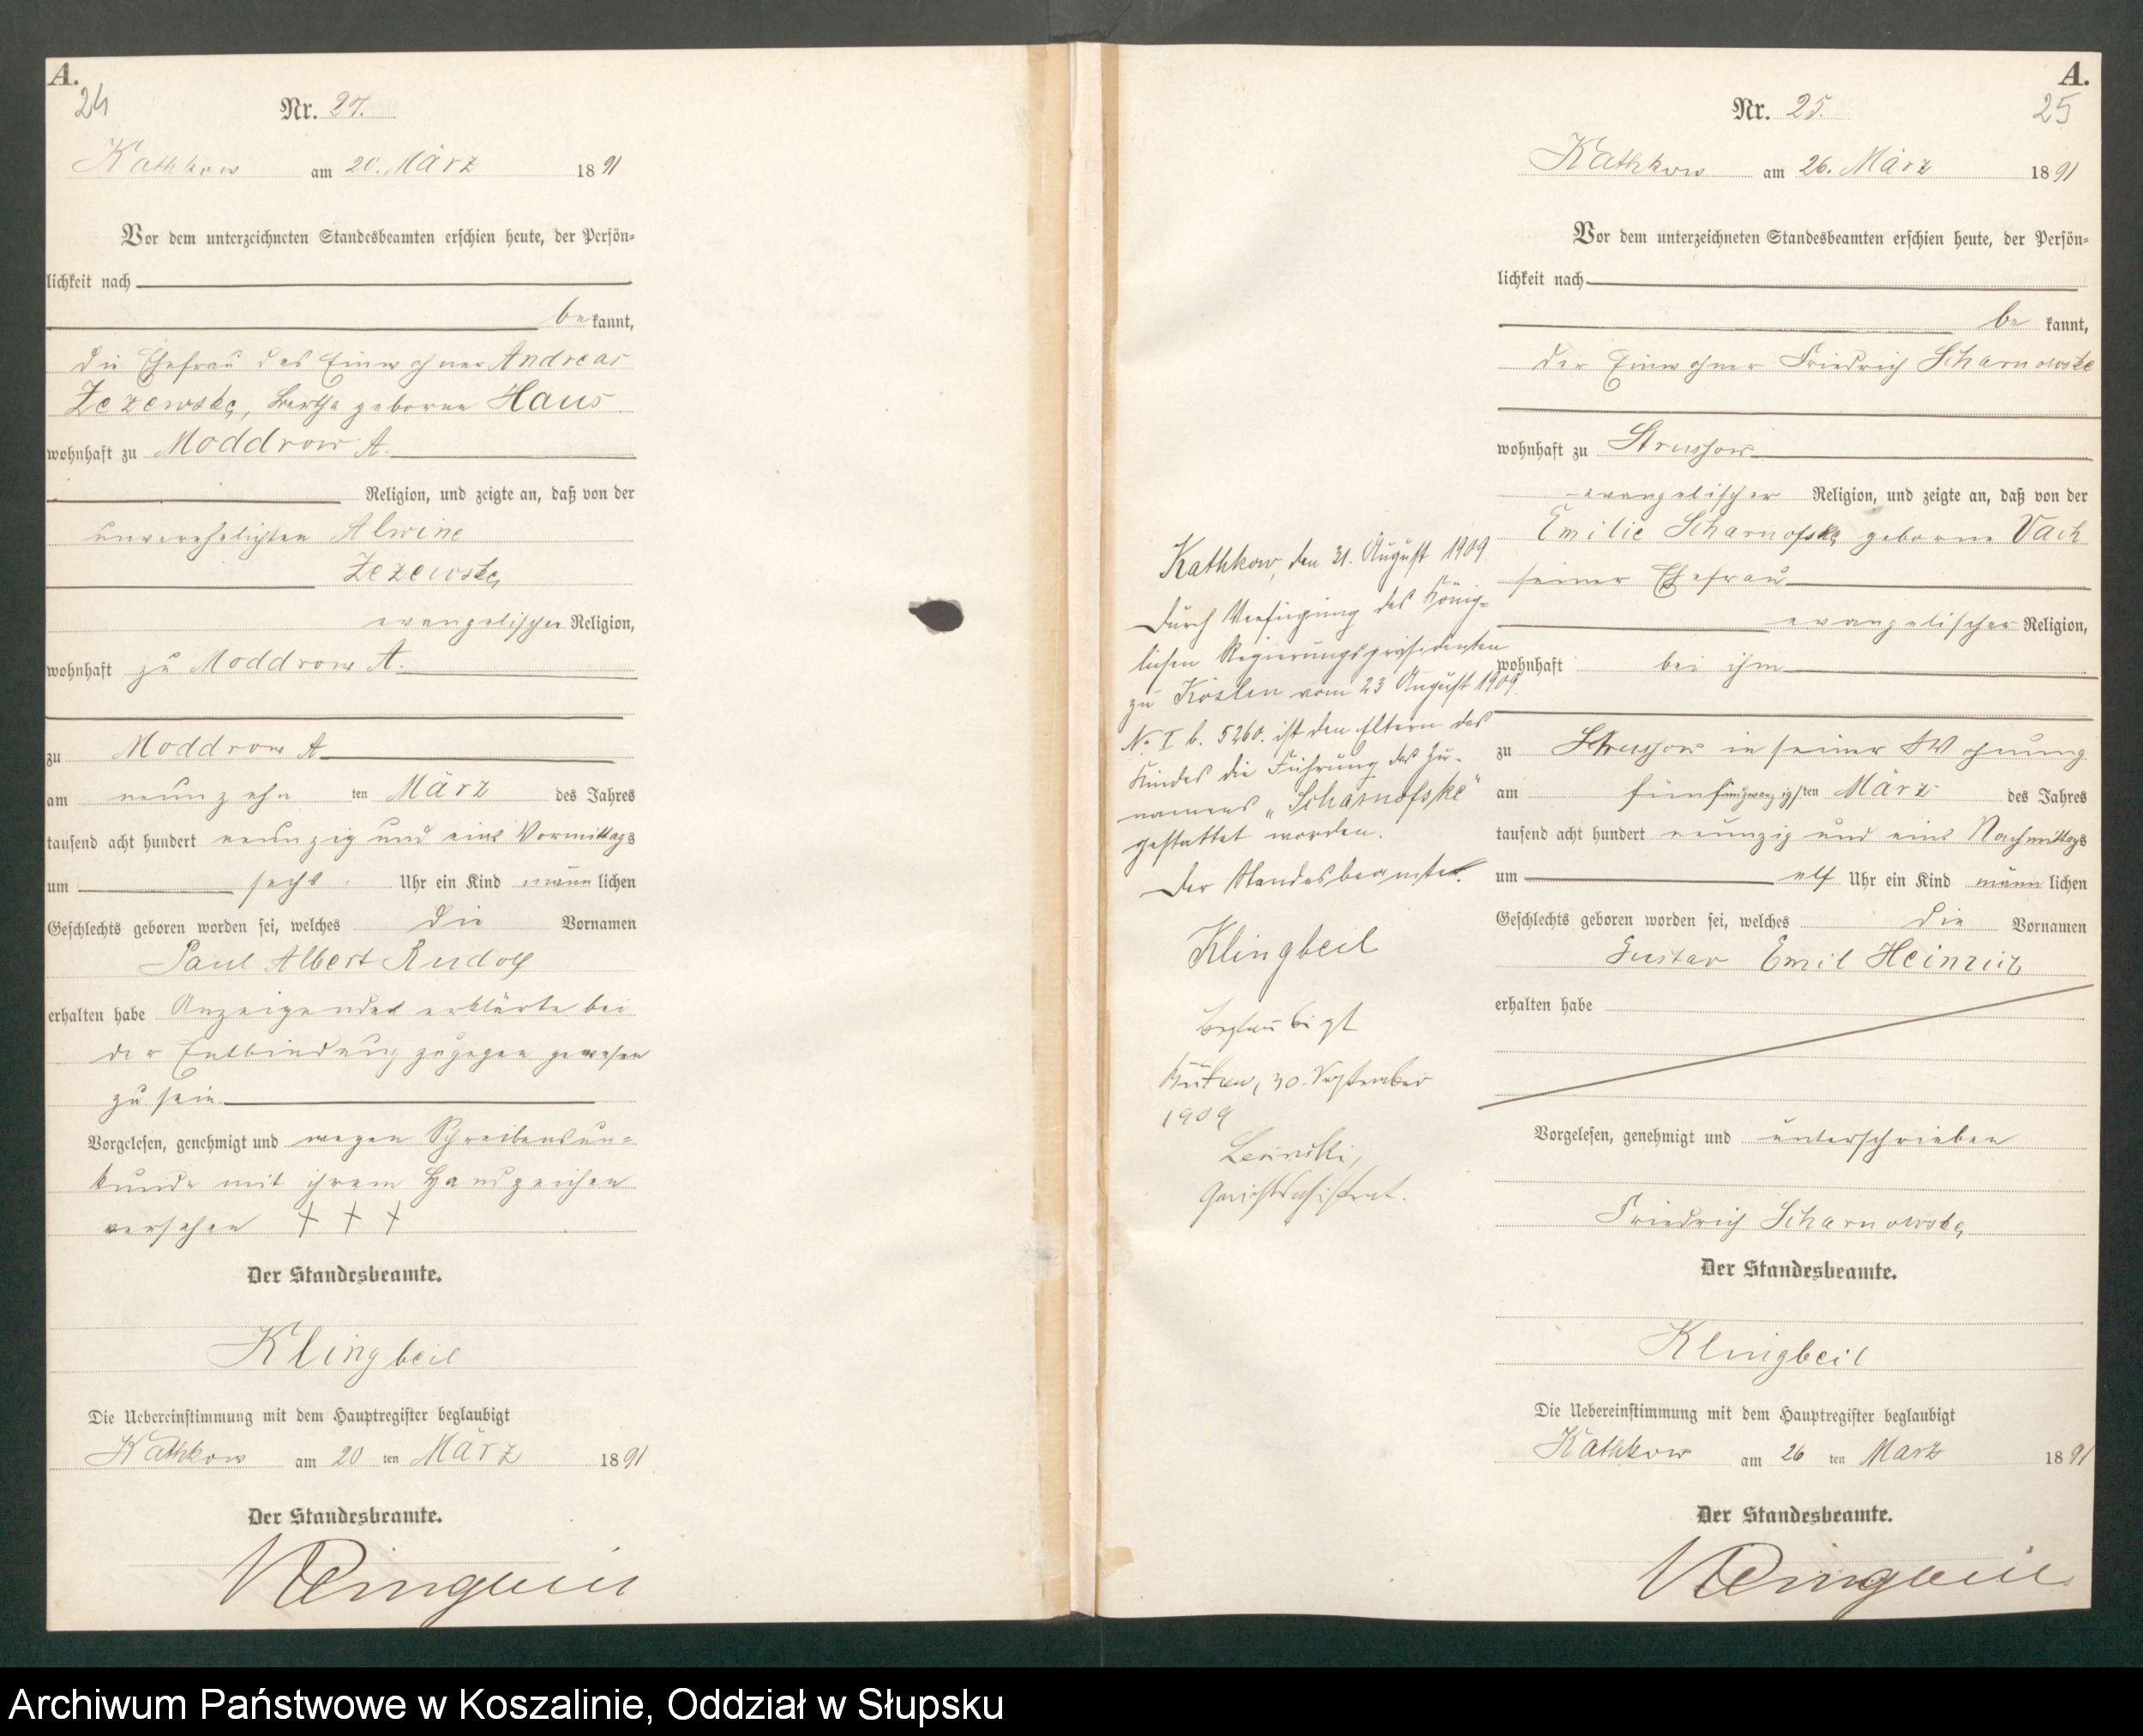 A.
24
Nr. 24.
Kathkow am 20. März 1891
Vor dem unterzeichneten Standesbeamten erschien heute, der Persön-
lichkeit nach
bekannt,
die Ehefrau des Einwohner Andreas
Zezewske, Bertha geborne Haus
wohnhaft zu Moddrow A.
Religion, und zeigte an, daß von der
unverehelichten Alwine
Zezewske
evangelischer Religion,
wohnhaft zu Moddrow A.
zu Moddrow A
am neunzehn ten März des Jahres
tausend acht hundert neunzig und eins Vormittags
um sechs Uhr ein Kind männlichen
Geschlechts geboren worden sei, welches die Vornamen
Paul Albert Rudolf
erhalten habe Anzeigende erklärte bei
der Entbindung zugegen gewesen
zu sein.
Vorgelesen, genehmigt und wegen Schreibensun-
kunde mit ihrem Handzeichen
versehen † † †
Der Standesbeamte.
Klingbeil
Die Uebereinstimmung mit dem Hauptregister beglaubigt
Kathkow am 20 ten März 1891
Der Standesbeamte.
Klingbeil
Kathkow, den 31. August 1909.
Durch Verfügung des König-
lichen Regierungspräsidenten
zu Köslin vom 23 August 1909.
No I b. 5260. ist den Eltern des
Kindes die Führung des Zu-
namens „Scharnofske"
gestattet worden.
Der Standesbeamte.
Klingbeil
Beglaubigt
Bütow, 30. September
1909
Gerichtsassistent.
A.
25
Nr. 25.
Kathkow am 26. März 1891
Vor dem unterzeichneten Standesbeamten erschien heute, der Persön-
lichkeit nach
be kannt,
der Einwohner Friedrich Scharnowske
wohnhaft zu Strussow
evangelischer Religion, und zeigte an, daß von der
Emilie Scharnofske geborne Vach
seiner Ehefrau
evangelischer Religion,
wohnhaft bei ihm
zu Strussow in seiner Wohnung
am fünfundzwanzigsten März des Jahres
tausend acht hundert neunzig und eins Nachmittags
um elf Uhr ein Kind männlichen
Geschlechts geboren worden sei, welches die Vornamen
Gustav Emil Heinrich
erhalten habe
Vorgelesen, genehmigt und unterschrieben
Friedrich Scharnowske
Der Standesbeamte.
Klingbeil
Die Uebereinstimmung mit dem Hauptregister beglaubigt
Kathkow am 26 ten März 1891
Der Standesbeamte.
Klingbeil
Archiwum Państwowe w Koszalinie, Oddział w Słupsku